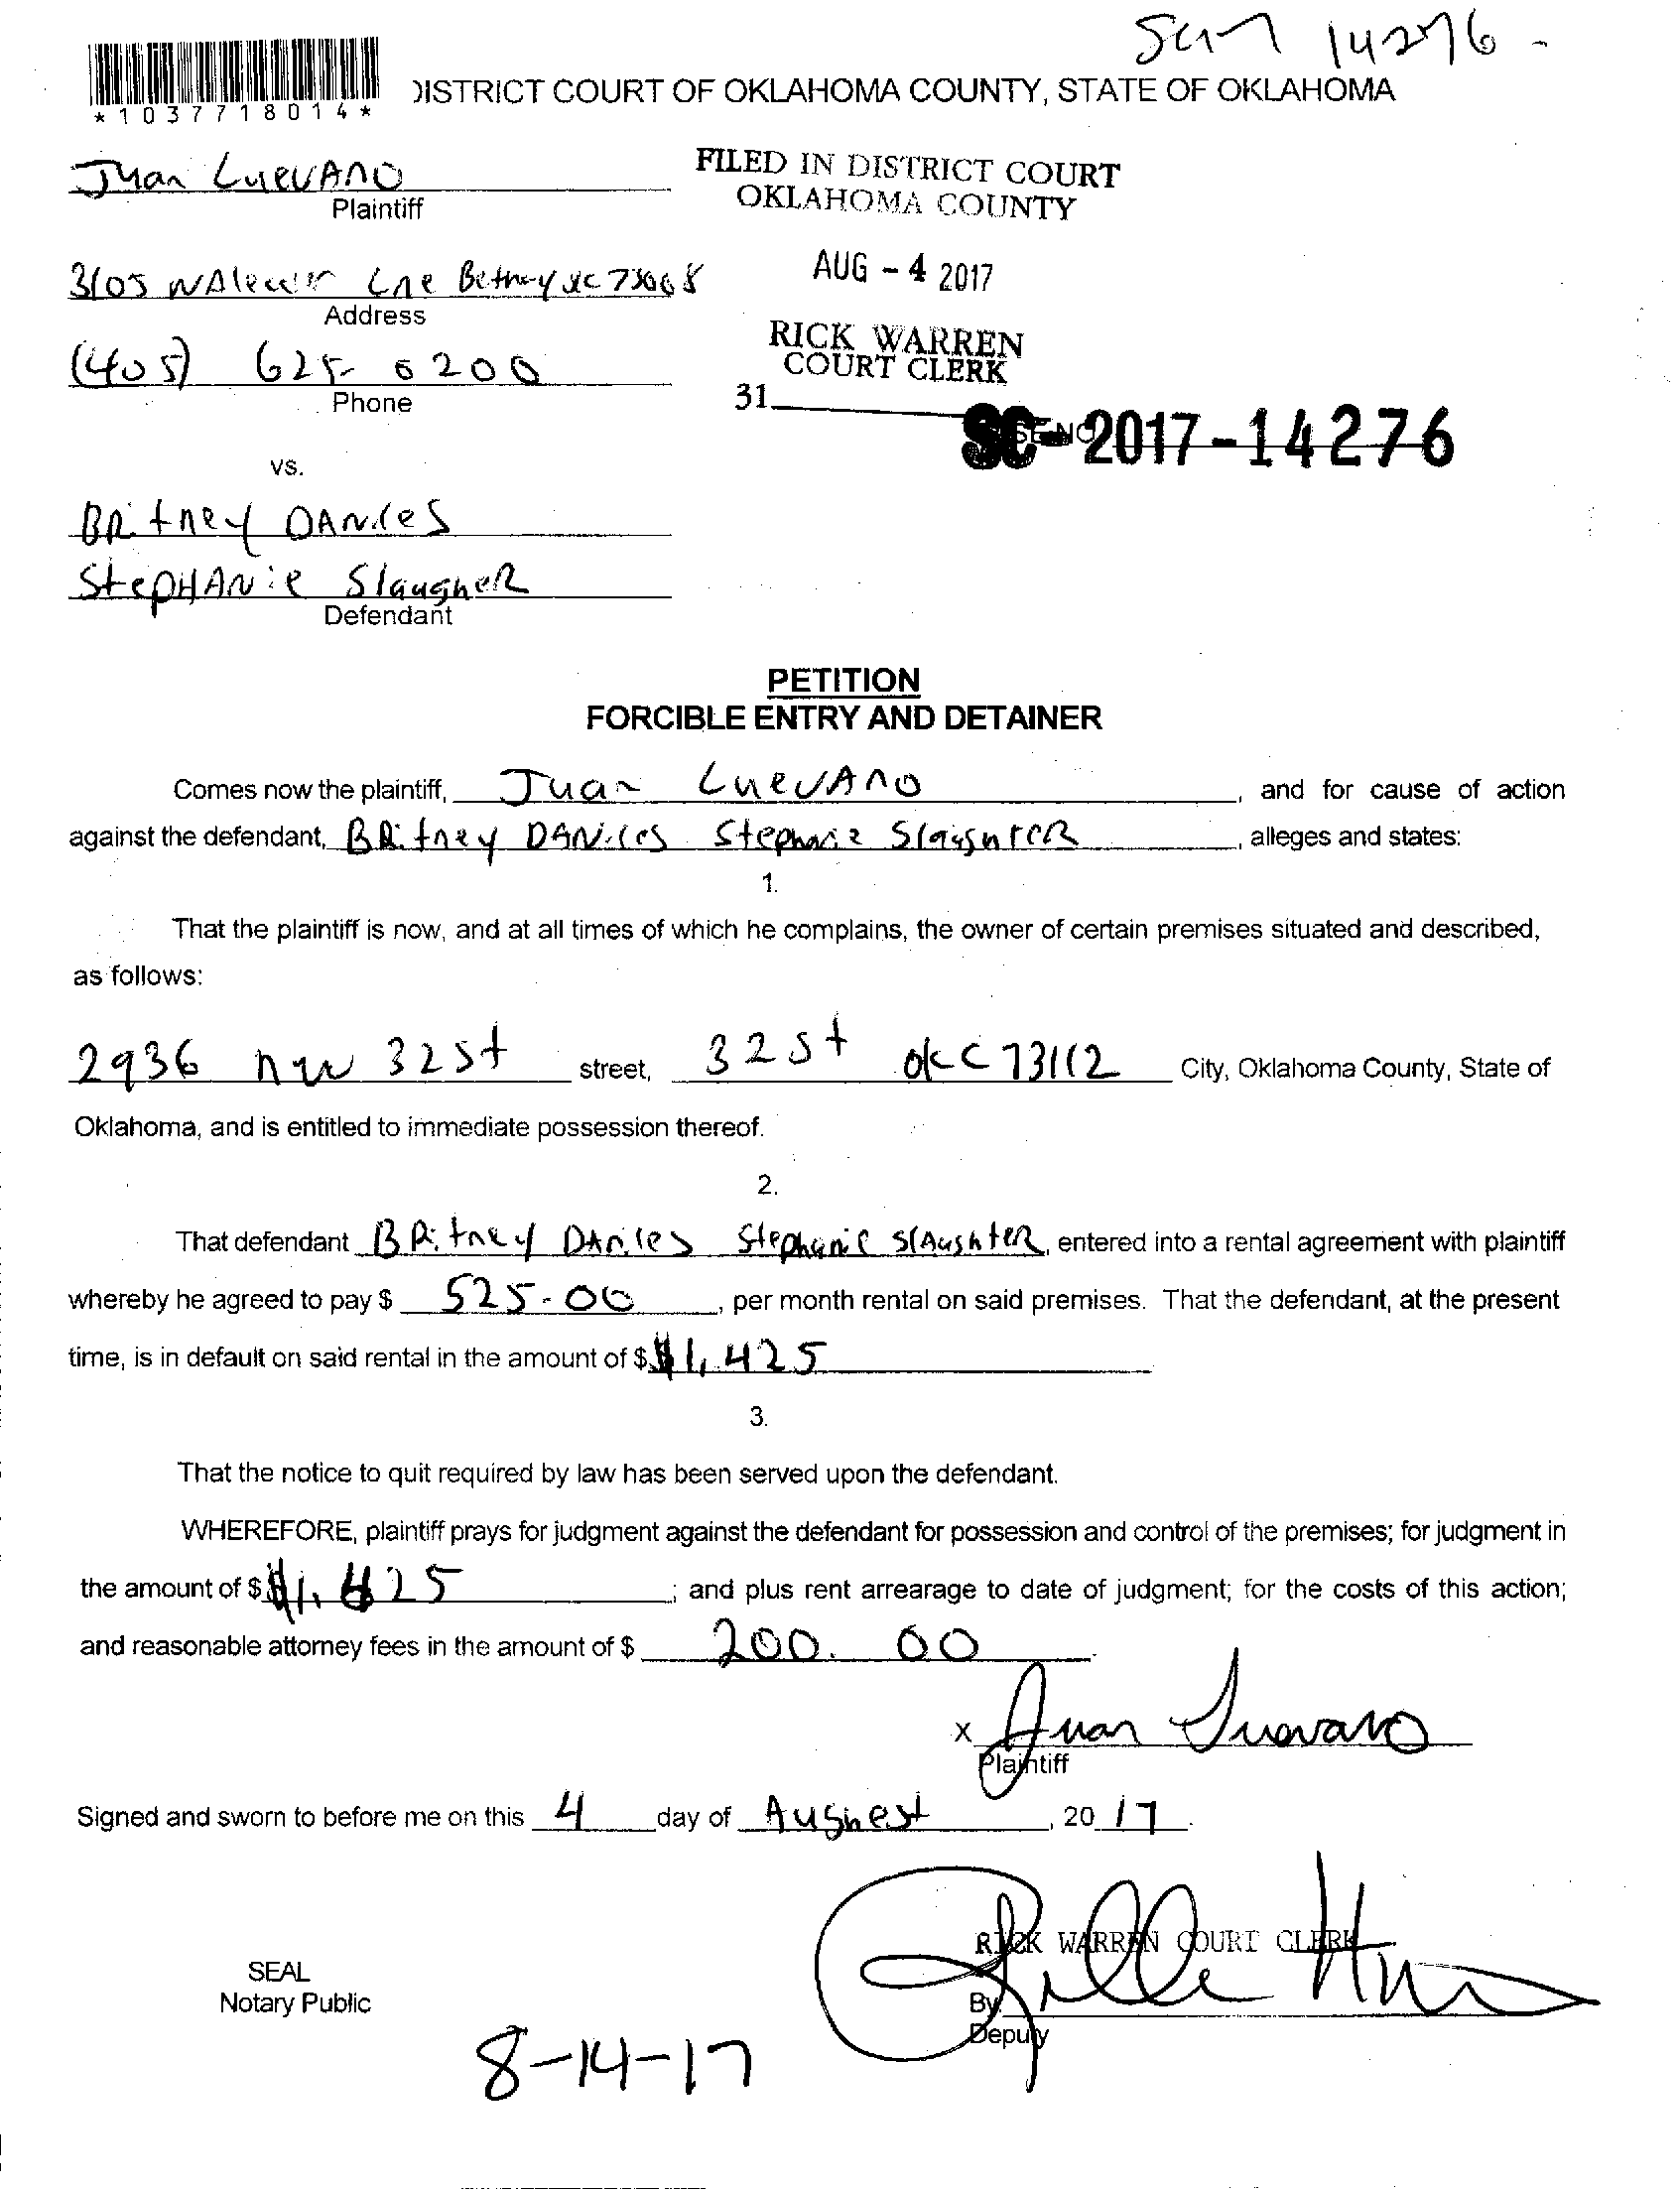 14276 -
*1037718014*
DISTRICT COURT OF OKLAHOMA COUNTY, STATE OF OKLAHOMA
Juan LueVANO
Plaintiff
FILED IN DISTRICT COURT
OKLAHOMA COUNTY
AUG - 4 2017
3105 N
Address
RICK WARREN
COURT CLERK
(405) 625-0200
Phone
31
SC-2017-14276
vs.
BRitney DANiles
StePHANie SlaugheR
Defendant
PETITION
FORCIBLE ENTRY AND DETAINER
Comes now the plaintiff, Juan LueVANO, and for cause of action
against the defendant, BRitney DANiles Stephanie SlaughteR, alleges and states:
1.
That the plaintiff is now, and at all times of which he complains, the owner of certain premises situated and described,
as follows:
2936 nw 32st street, 32st okc 73112 City, Oklahoma County, State of
Oklahoma, and is entitled to immediate possession thereof.
2.
That defendant BRitney DANiles Stephanie SlAughteR, entered into a rental agreement with plaintiff
whereby he agreed to pay $ 525-00, per month rental on said premises. That the defendant, at the present
time, is in default on said rental in the amount of $ $1,425
3.
That the notice to quit required by law has been served upon the defendant.
WHEREFORE, plaintiff prays for judgment against the defendant for possession and control of the premises; for judgment in
the amount of $ $1,425; and plus rent arrearage to date of judgment; for the costs of this action;
and reasonable attorney fees in the amount of $ 200.00
x Juan Luevano
Plaintiff
Signed and sworn to before me on this 4 day of Aughest, 20 17.
RICK WARREN COURT CLERK
SEAL
Notary Public
By
Deputy
8-14-17